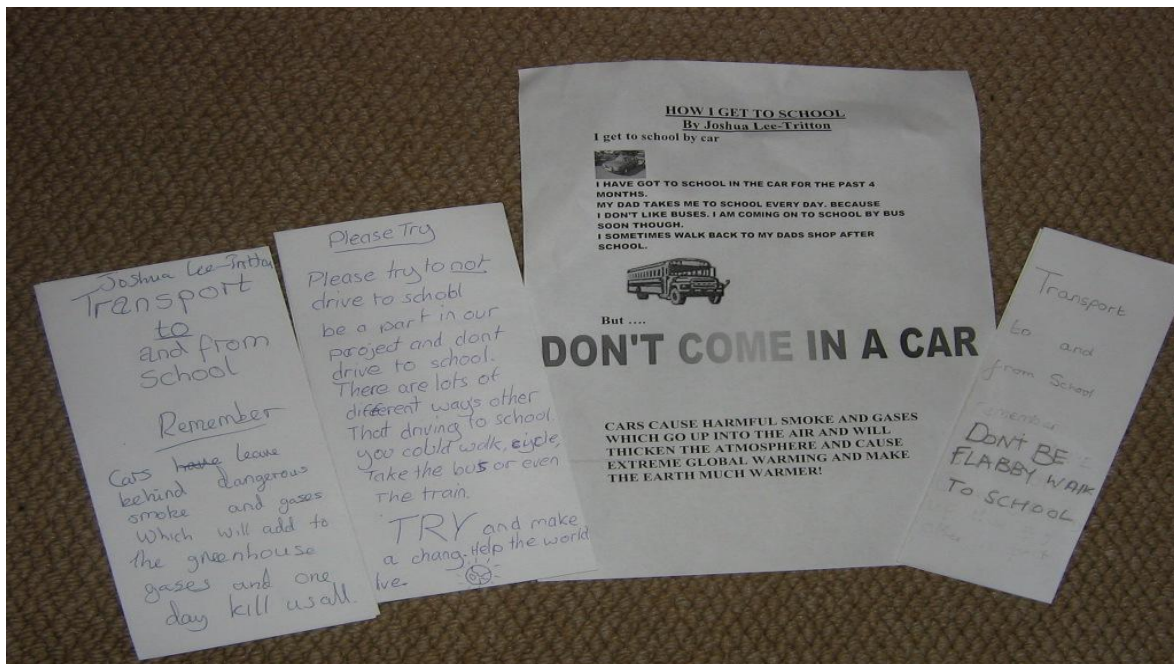 Joshua Lee-Tritton
Transport
to
and from
School
Remember
Cars have leave
behind dangerous
smoke and gases
which will add to
the greenhouse
gases and one
day kill us all.
Please Try
Please try to not
drive to school
be a part in our
project and dont
drive to school.
There are lots of
different ways other
That driving to school
you could walk, cycle,
Take the bus or even
The train.
TRY and make
a chang. Help the world
live.
HOW I GET TO SCHOOL
By Joshua Lee-Tritton
I get to school by car
I HAVE GOT TO SCHOOL IN THE CAR FOR THE PAST 4
MONTHS.
MY DAD TAKES ME TO SCHOOL EVERY DAY. BECAUSE
I DON'T LIKE BUSES. I AM COMING ON TO SCHOOL BY BUS
SOON THOUGH.
I SOMETIMES WALK BACK TO MY DADS SHOP AFTER
SCHOOL.
But ....
DON'T COME IN A CAR
CARS CAUSE HARMFUL SMOKE AND GASES
WHICH GO UP INTO THE AIR AND WILL
THICKEN THE ATMOSPHERE AND CAUSE
EXTREME GLOBAL WARMING AND MAKE
THE EARTH MUCH WARMER!
Transport
to and
from School
DON'T BE
FLABBY WALK
TO SCHOOL